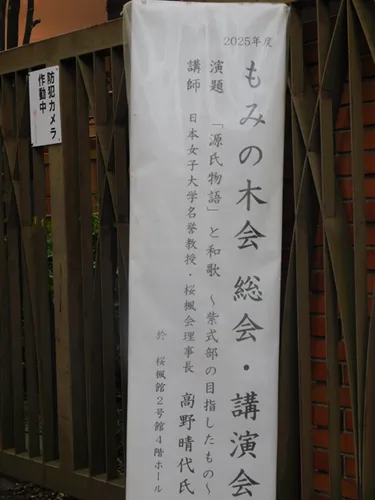 2025年度
もみの木会 総会・講演会
演題 「源氏物語」と和歌 〜紫式部の目指したもの〜
講師 日本女子大学名誉教授・桜楓会理事長 高野晴代氏
於 桜楓館2号館4階ホール
防犯カメラ
作動中